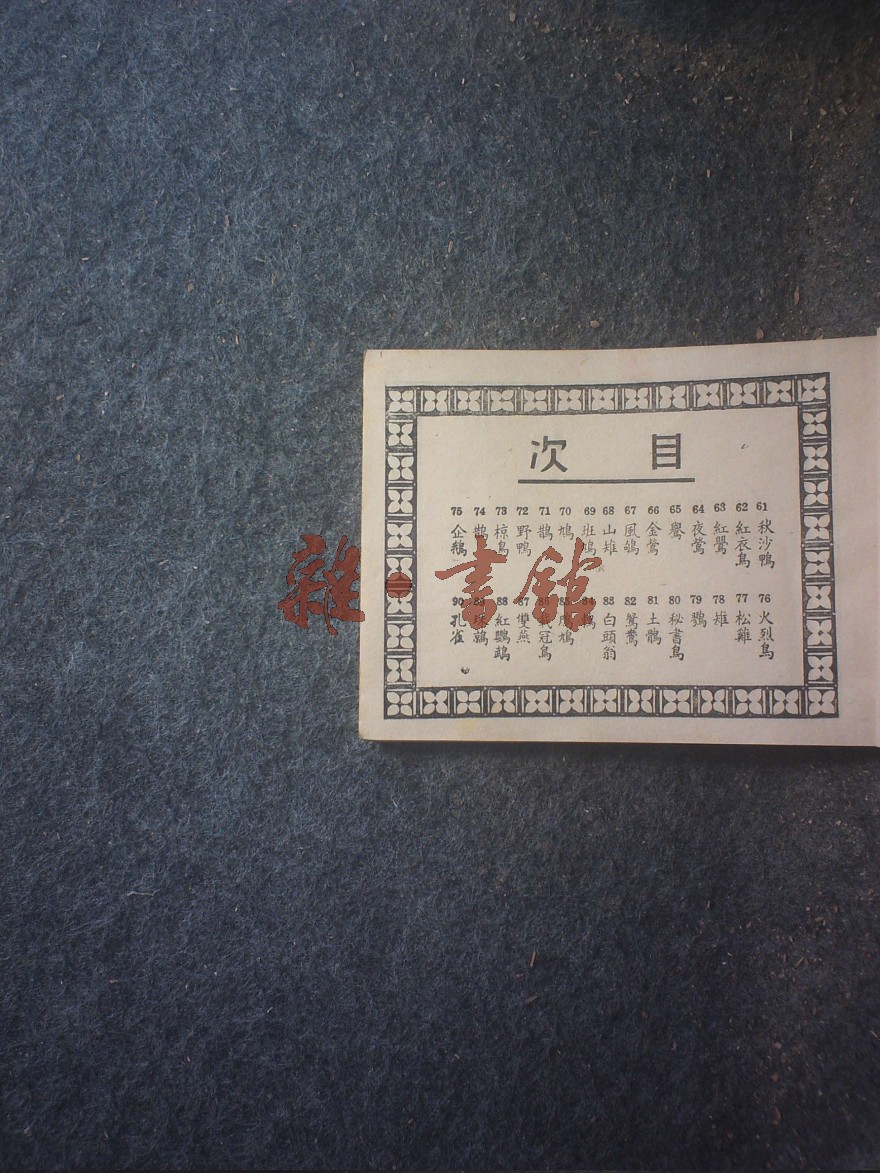 目次
61 秋沙鴨
62 紅衣鳥
63 紅鸎
64 夜鶯
65 鸒
66 金鶯
67 風鴿
68 山雉
69 班鳩
70 鳩
71 鵲
72 野鴨
73 椋鳥
74
75 企鵝
76 火烈鳥
77 松雞
78 雉
79 鶚
80 秘書鳥
81 土鶻
82 鴛鴦
83 白頭翁
84
85 鳩
86 冠鳥
87 雙燕
88 紅鸚鵡
89
90 孔雀
雜·書館